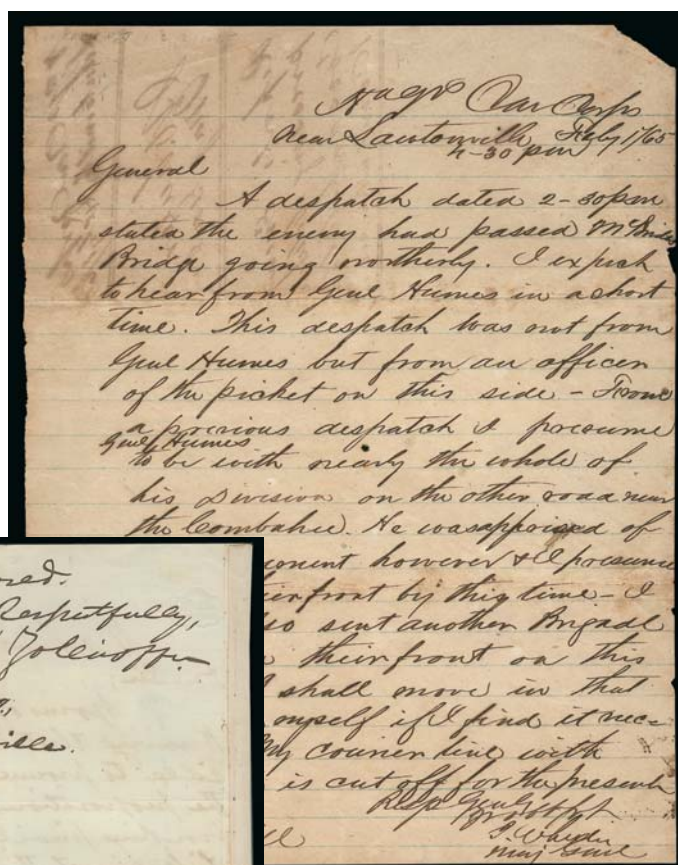 Hdqrs Cav Corps
near Lawtonville Feby 1/65
4-30 pm
General
A despatch dated 2-30pm
stated the enemy had passed McBrides
Bridge going northerly. I expect
to hear from Genl Humes in a short
time. This despatch was not from
Genl Humes but from an officer
of the picket on this side - From
a previous despatch I presume
Genl Humes
to be with nearly the whole of
his Division on the other road near
the Combahee. He was apprised of
however & I presume
front by this time - I
so sent another Brigade
their front on this
I shall move in that
myself if I find it nec=
My courier line with
is cut off for the present
Resp Genl
yr obt svt
J. Wheeler
Maj Genl
Respectfully,
ville.